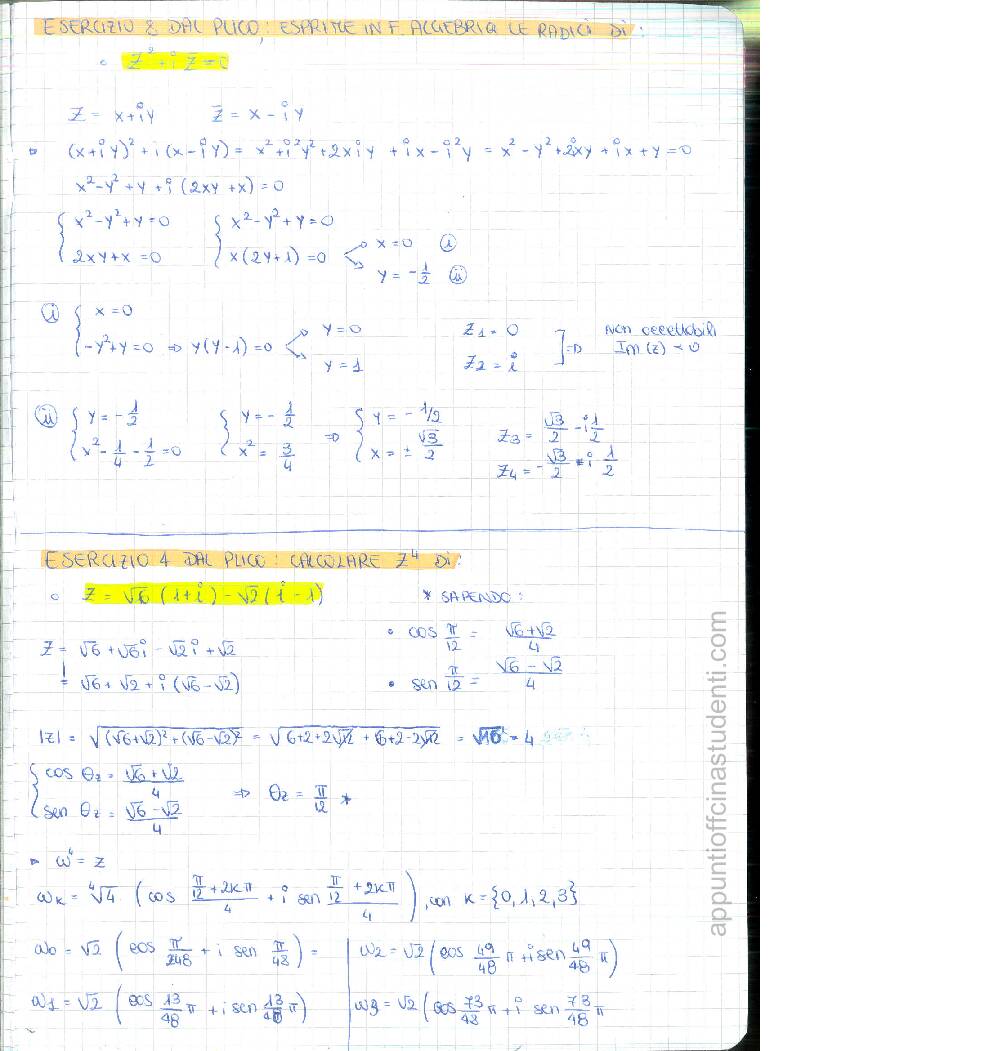 ESERCIZIO 8 DAL PLICO: ESPRIMERE IN F. ALGEBRICA LE RADICI DI:
• z² + i z̄ = 0
z = x+iy    z̄ = x - iy
(x+iy)² + i(x-iy) = x² + i²y² + 2xiy + ix - i²y = x² - y² + 2ixy + ix + y = 0
x² - y² + y + i(2xy + x) = 0
{ x² - y² + y = 0    { x² - y² + y = 0
{ 2xy + x = 0    { x(2y+1) = 0    x = 0 (i)
y = -1/2 (ii)
(i) { x = 0    y = 0    z1 = 0    Non accettabili
{ -y² + y = 0 ⇒ y(y-1) = 0    y = 1    z2 = i    ] ⇒ Im(z) < 0
(ii) { y = -1/2    { y = -1/2    ⇒ { y = -1/2    z3 = √3/2 - i 1/2
{ x² - 1/4 - 1/2 = 0    { x² = 3/4    { x = ± √3/2    z4 = -√3/2 - i 1/2
ESERCIZIO 4 DAL PLICO: CALCOLARE z⁴ DI:
• z = √6 (1+i) - √2 (i-1)    * SAPENDO:
z = √6 + √6i - √2i + √2    • cos π/12 = (√6+√2)/4
= √6 + √2 + i(√6-√2)    • sen π/12 = (√6-√2)/4
|z| = √((√6+√2)² + (√6-√2)²) = √(6+2+2√12 + 6+2-2√12) = √16 = 4
{ cos θz = (√6+√2)/4
{ sen θz = (√6-√2)/4    ⇒ θz = π/12 *
ω⁴ = z
ωk = ⁴√4 (cos (π/12 + 2kπ)/4 + i sen (π/12 + 2kπ)/4), con k = {0,1,2,3}
ω0 = √2 (cos π/48 + i sen π/48) =    ω2 = √2 (cos 49/48 π + i sen 49/48 π)
ω1 = √2 (cos 13/48... π + i sen 13/48 π)    ω3 = √2 (cos 73/48 π + i sen 73/48 π
appuntioffcinastudenti.com